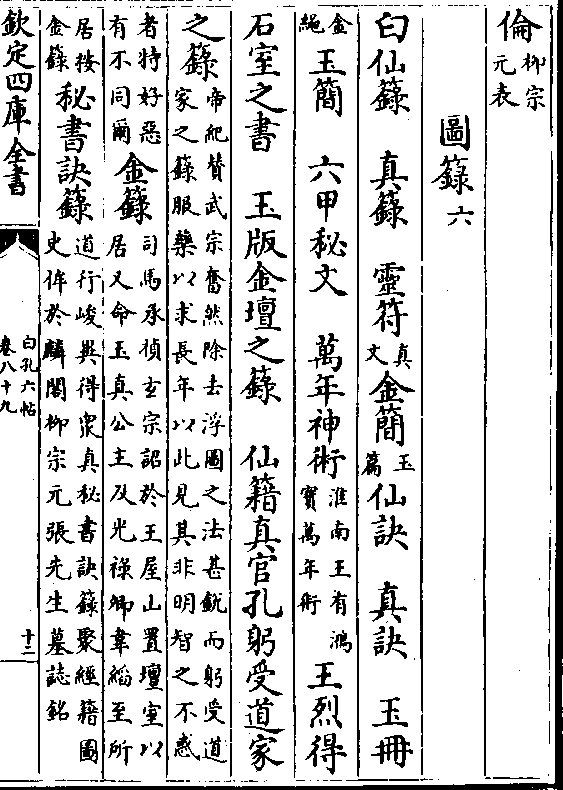 倫柳宗元表
圖籙六
白仙籙 真籙 靈符真文金簡玉篇仙訣 真訣 玉冊
金繩玉簡 六甲秘文 萬年神術淮南王有鴻寶萬年術王烈得
石室之書 玉版金壇之籙 仙籍真官孔躬受道家
之籙帝紀贊武宗奮然除去浮圖之法甚鋭而躬受道家之籙服藥以求長年以此見其非明智之不惑
者特好惡有不同爾金籙司馬承禎玄宗詔於王屋山置壇室以居又命玉真公主及光祿卿韋縚至所
居按金籙秘書訣籙道行峻異得衆真秘書訣籙聚經籍圖史侔於麟閣柳宗元張先生墓誌銘
欽定四庫全書
白孔六帖
卷八十九
十二